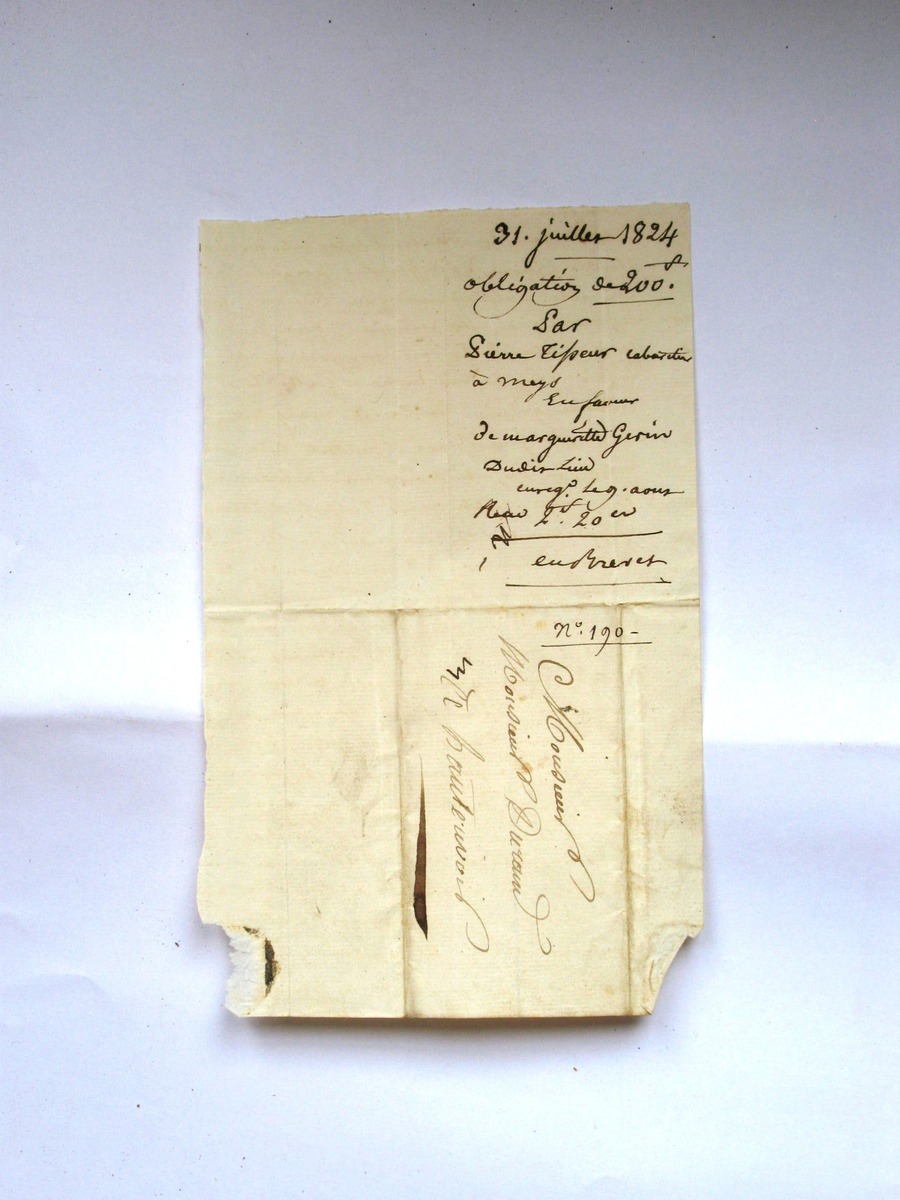 31. juillet 1824
obligation de 200f.
Par
Pierre Tisseur cabaretier
à meys
En faveur
de margueritte Gerin
Dudit Lieu
enreg.é le 9. aout
2f. 20 en
en Brevet
N.o 190 -
Monsieur
Monsieur Durand